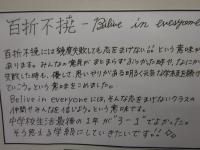 百折不撓 - Belive in everyone
百折不撓には幾度失敗しても志をまげない!!という意味が
あります。みんなの全員が"あきらめず"ぶつかった時や、なにかに
失敗した時も、優しく思いやりがある明るく元気な学級目標に
していこう。という意味をこめました。
Belive in everyoneには、そんな志をまげないクラスの
仲間やみんなを信じよう。という意味です。
中学校生活最後の1年が"3-1"でよかった。
そう思える学級にしていきたいです!!